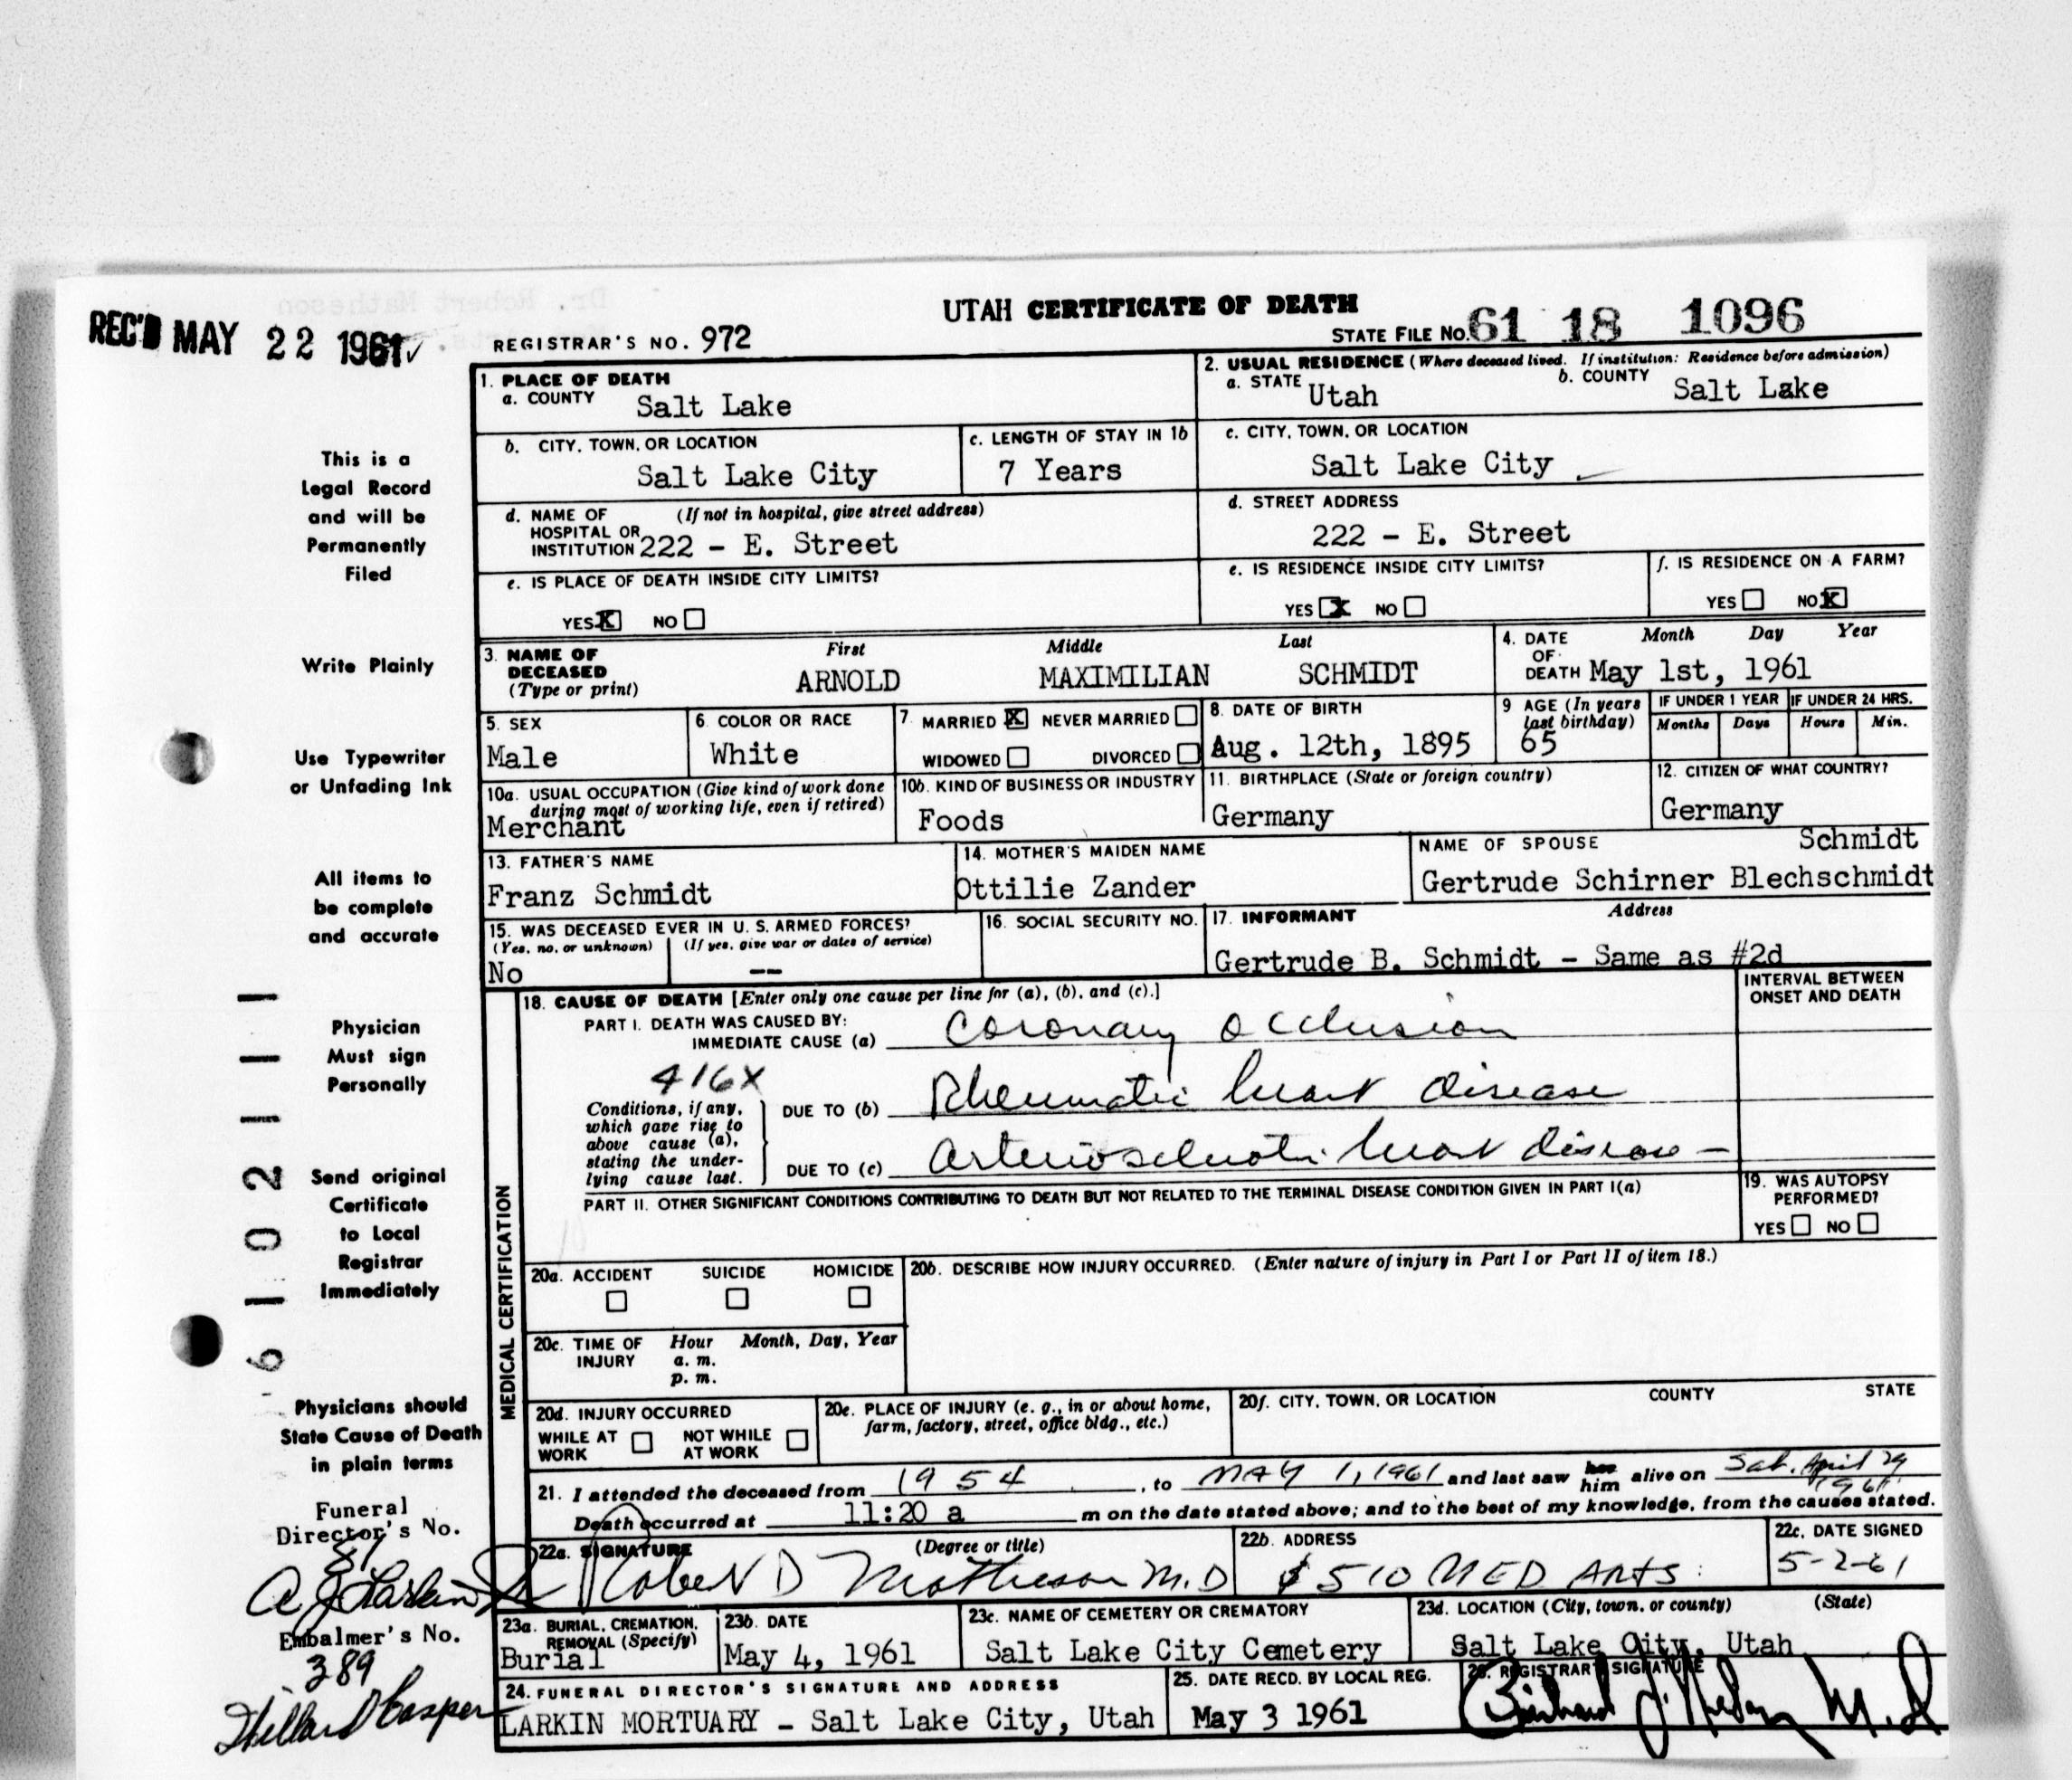 UTAH CERTIFICATE OF DEATH
REC'D MAY 22 1961
REGISTRAR'S NO. 972
STATE FILE NO. 61 18 1096
1. PLACE OF DEATH
a. COUNTY Salt Lake
2. USUAL RESIDENCE (Where deceased lived. If institution: Residence before admission)
a. STATE Utah b. COUNTY Salt Lake
b. CITY, TOWN, OR LOCATION Salt Lake City
c. LENGTH OF STAY IN 1b 7 Years
c. CITY, TOWN, OR LOCATION Salt Lake City
d. NAME OF HOSPITAL OR INSTITUTION (If not in hospital, give street address) 222 - E. Street
d. STREET ADDRESS 222 - E. Street
e. IS PLACE OF DEATH INSIDE CITY LIMITS?
YES X NO
e. IS RESIDENCE INSIDE CITY LIMITS?
YES X NO
f. IS RESIDENCE ON A FARM?
YES NO X
3. NAME OF DECEASED (Type or print)
First Middle Last
ARNOLD MAXIMILIAN SCHMIDT
4. DATE OF DEATH Month Day Year
May 1st, 1961
5. SEX Male
6. COLOR OR RACE White
7. MARRIED X NEVER MARRIED
WIDOWED DIVORCED
8. DATE OF BIRTH Aug. 12th, 1895
9 AGE (In years last birthday) 65
IF UNDER 1 YEAR Months Days
IF UNDER 24 HRS. Hours Min.
10a. USUAL OCCUPATION (Give kind of work done during most of working life, even if retired) Merchant
10b. KIND OF BUSINESS OR INDUSTRY Foods
11. BIRTHPLACE (State or foreign country) Germany
12. CITIZEN OF WHAT COUNTRY? Germany
13. FATHER'S NAME Franz Schmidt
14. MOTHER'S MAIDEN NAME Ottilie Zander
NAME OF SPOUSE Schmidt
Gertrude Schirner Blechschmidt
15. WAS DECEASED EVER IN U. S. ARMED FORCES?
(Yes, no, or unknown) (If yes, give war or dates of service)
No --
16. SOCIAL SECURITY NO.
17. INFORMANT Address
Gertrude B. Schmidt - Same as #2d
18. CAUSE OF DEATH [Enter only one cause per line for (a), (b), and (c).]
INTERVAL BETWEEN ONSET AND DEATH
PART I. DEATH WAS CAUSED BY:
IMMEDIATE CAUSE (a) Coronary occlusion
416X
Conditions, if any, which gave rise to above cause (a), stating the underlying cause last.
DUE TO (b) Rheumatic heart disease
DUE TO (c) Arteriosclerotic heart disease -
PART II. OTHER SIGNIFICANT CONDITIONS CONTRIBUTING TO DEATH BUT NOT RELATED TO THE TERMINAL DISEASE CONDITION GIVEN IN PART I(a)
19. WAS AUTOPSY PERFORMED?
YES NO
MEDICAL CERTIFICATION
20a. ACCIDENT SUICIDE HOMICIDE
20b. DESCRIBE HOW INJURY OCCURRED. (Enter nature of injury in Part I or Part II of item 18.)
20c. TIME OF INJURY Hour Month, Day, Year
a. m.
p. m.
20d. INJURY OCCURRED
WHILE AT WORK NOT WHILE AT WORK
20e. PLACE OF INJURY (e. g., in or about home, farm, factory, street, office bldg., etc.)
20f. CITY, TOWN, OR LOCATION COUNTY STATE
21. I attended the deceased from 1954, to MAY 1, 1961 and last saw her him alive on Sat. April 29 1961
Death occurred at 11:20 a m on the date stated above; and to the best of my knowledge, from the causes stated.
22a. SIGNATURE (Degree or title)
Robert D Matheson M.D
22b. ADDRESS
510 MED ARTS.
22c. DATE SIGNED
5-2-61
23a. BURIAL, CREMATION, REMOVAL (Specify) Burial
23b. DATE May 4, 1961
23c. NAME OF CEMETERY OR CREMATORY Salt Lake City Cemetery
23d. LOCATION (City, town, or county) (State)
Salt Lake City, Utah
24. FUNERAL DIRECTOR'S SIGNATURE AND ADDRESS
LARKIN MORTUARY - Salt Lake City, Utah
25. DATE RECD. BY LOCAL REG.
May 3 1961
26. REGISTRAR'S SIGNATURE
M.D
This is a
Legal Record
and will be
Permanently
Filed
Write Plainly
Use Typewriter
or Unfading Ink
All items to
be complete
and accurate
Physician
Must sign
Personally
Send original
Certificate
to Local
Registrar
Immediately
Physicians should
State Cause of Death
in plain terms
Funeral
Director's No.
87
A J Larkin
Embalmer's No.
389
Willard Casper